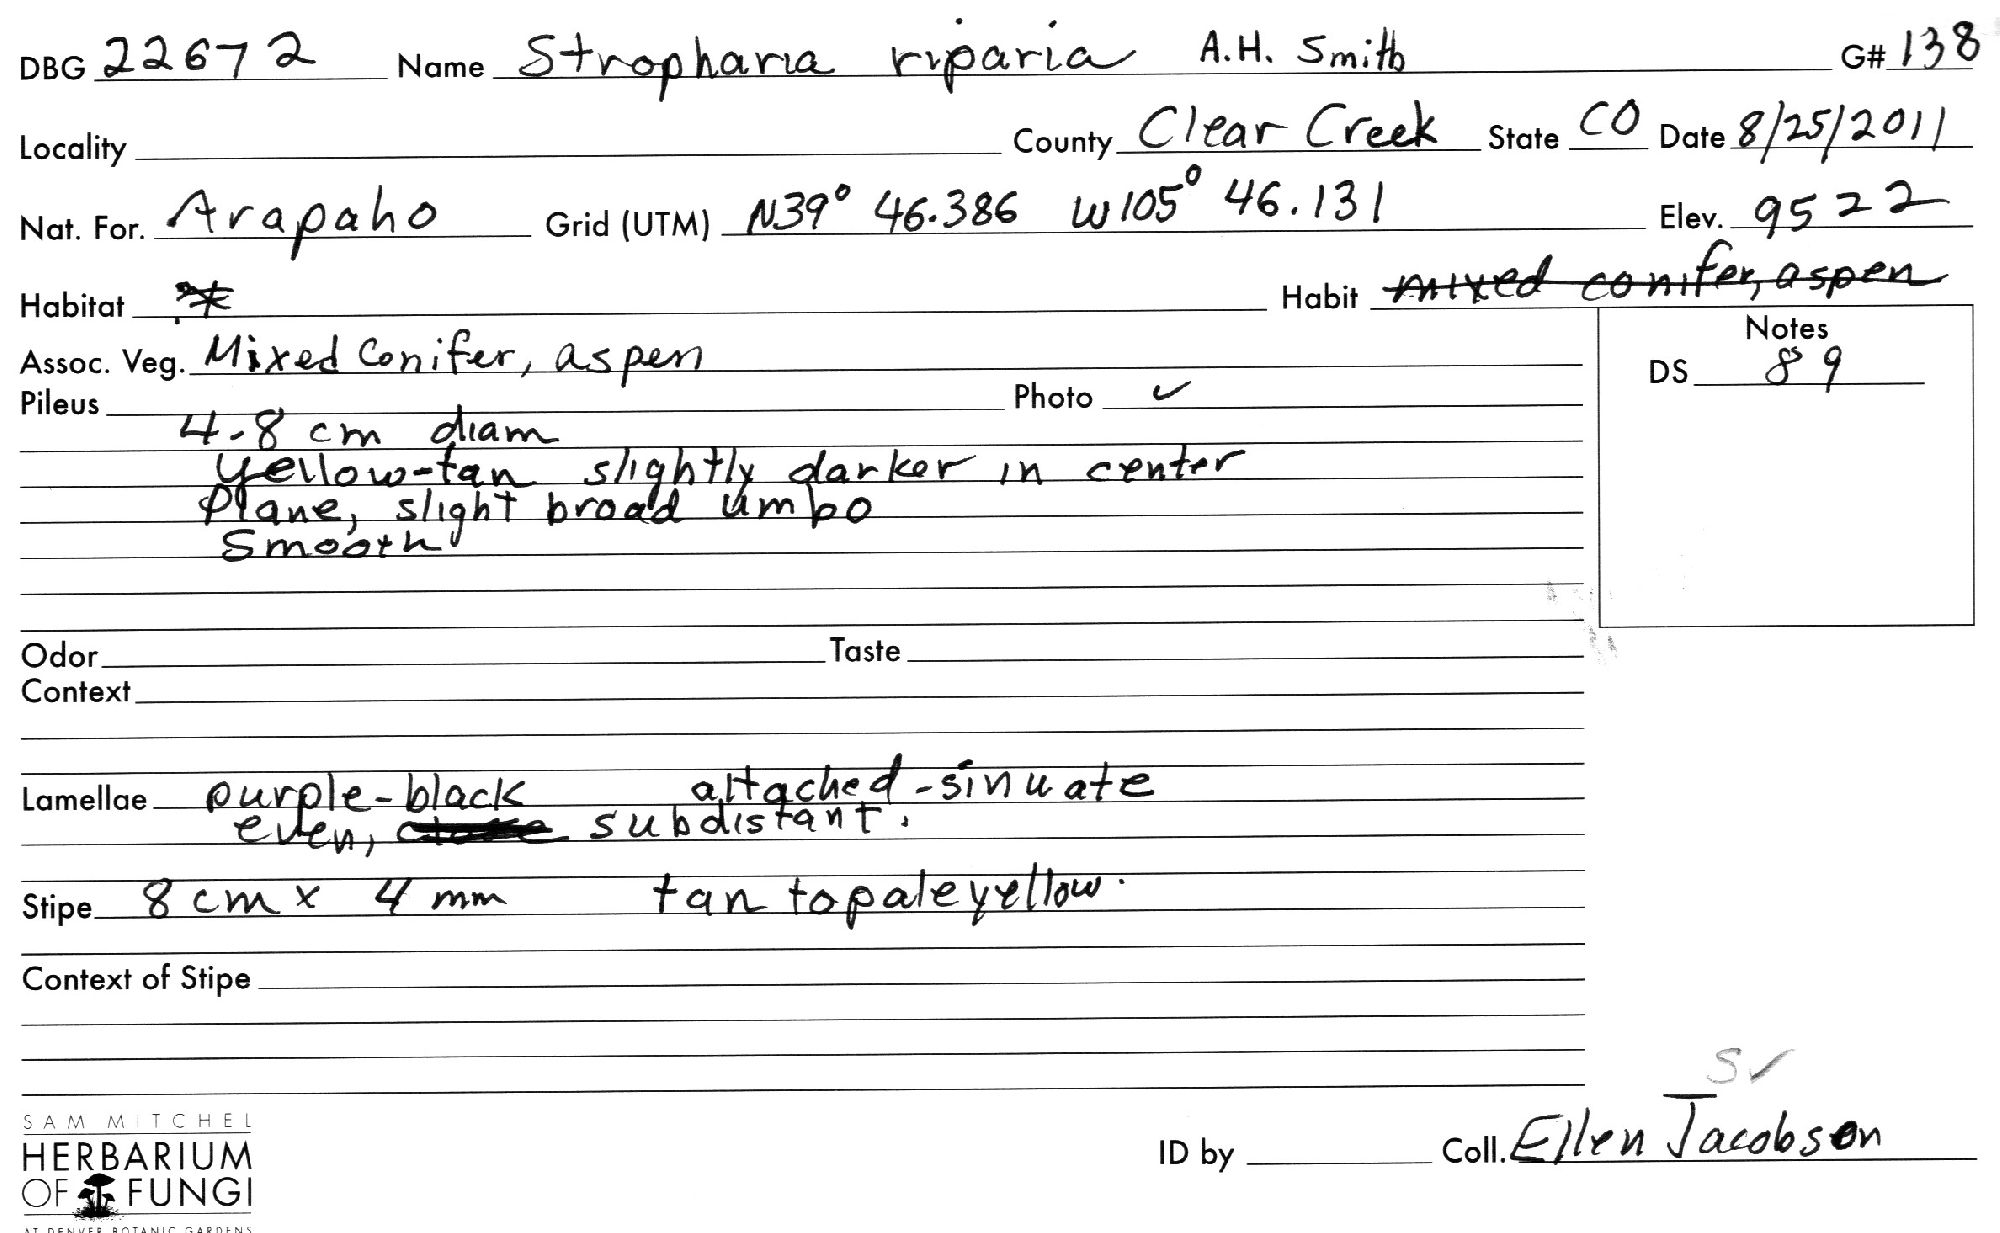 DBG 22672 Name Stropharia riparia A.H. Smith G# 138
Locality County Clear Creek State CO Date 8/25/2011
Nat. For. Arapaho Grid (UTM) N39° 46.386 W105° 46.131 Elev. 9522
Habitat Habit mixed conifer, aspen
Assoc. Veg. Mixed Conifer, aspen
Notes
DS 89
Pileus Photo ✓
4-8 cm diam
yellow-tan slightly darker in center
Plane, slight broad umbo
Smooth
Odor Taste
Context
Lamellae purple-black attached-sinuate
even, subdistant.
Stipe 8 cm x 4 mm tan to pale yellow.
Context of Stipe
S✓
ID by Coll. Ellen Jacobson
SAM MITCHEL
HERBARIUM
OF FUNGI
AT DENVER BOTANIC GARDENS